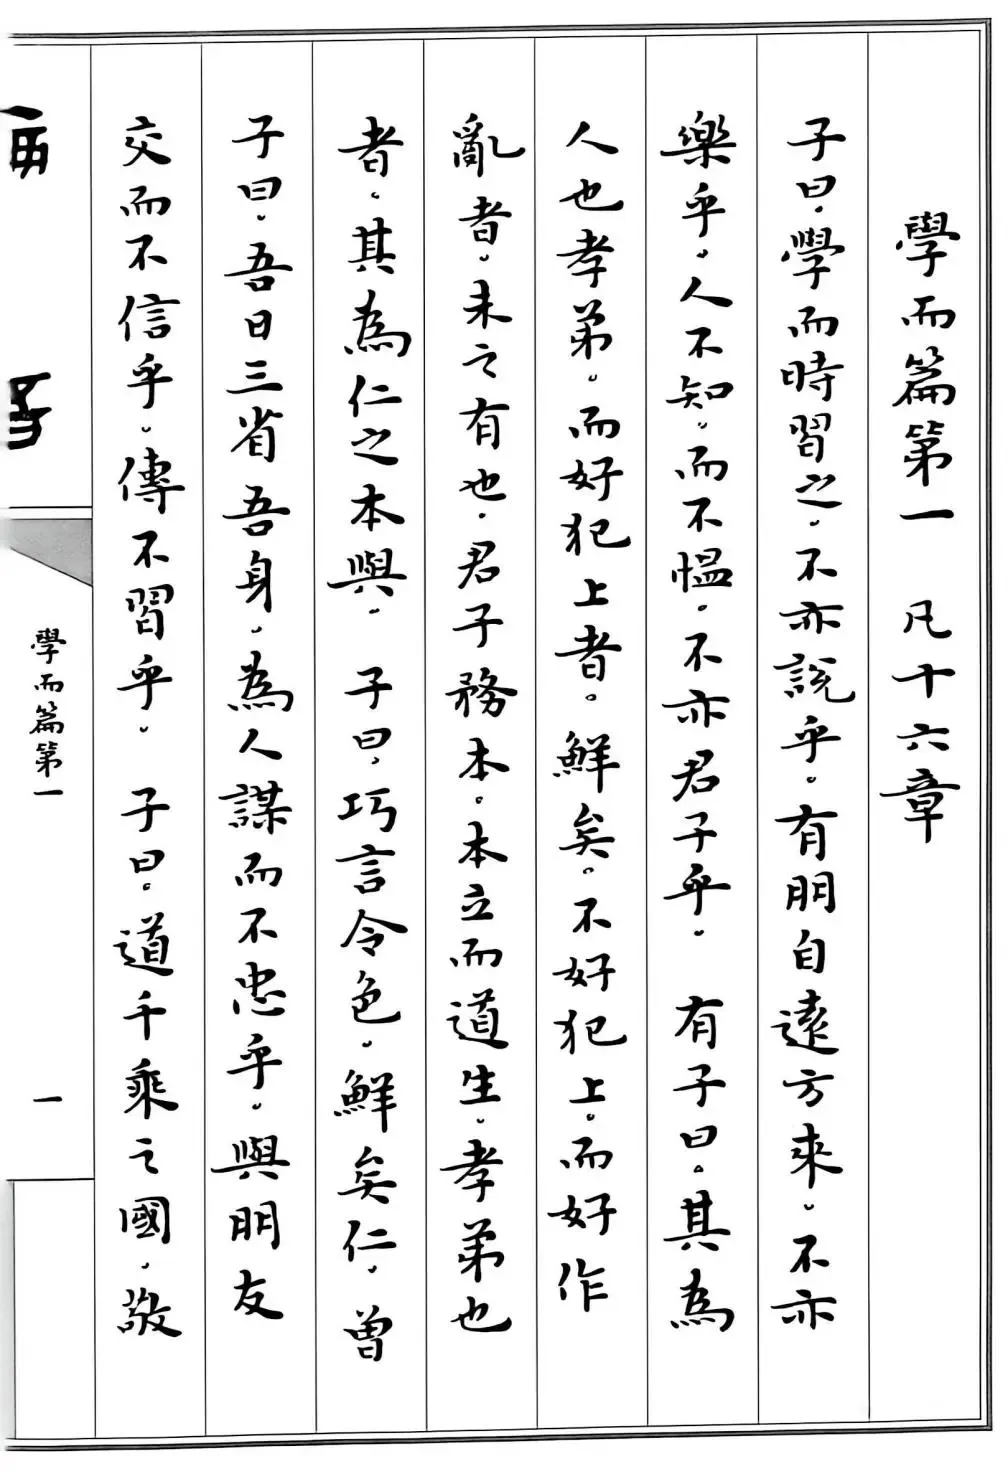 學而篇第一 凡十六章
子曰。學而時習之。不亦說乎。有朋自遠方來。不亦
樂乎。人不知。而不慍。不亦君子乎。 有子曰。其為
人也孝弟。而好犯上者。鮮矣。不好犯上。而好作
亂者。未之有也。君子務本。本立而道生。孝弟也
者。其為仁之本與。 子曰。巧言令色。鮮矣仁。曾
子曰。吾日三省吾身。為人謀而不忠乎。與朋友
交而不信乎。傳不習乎。 子曰。道千乘之國。敬
學而篇第一
一